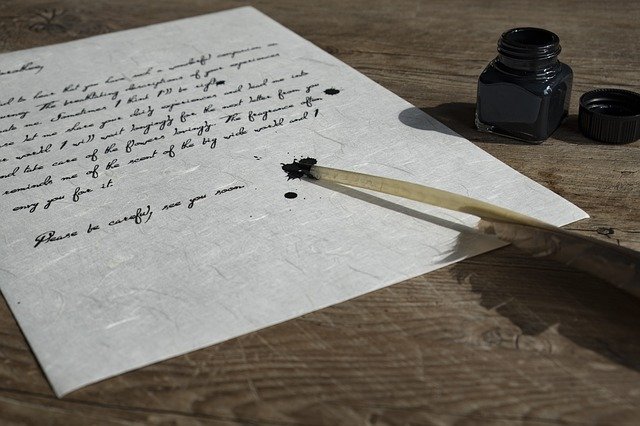 to hear that you have had a wonderful companion on
The breathtaking descriptions of your experiences
me. Sometimes I think I'll to
let me share your daily experiences and lead me into
world I will wait longingly for the next letter from you
and take care of the flowers lovingly. The fragrance often
reminds me of the scent of the big wide world and I
envy you for it.
Please be careful, see you soon